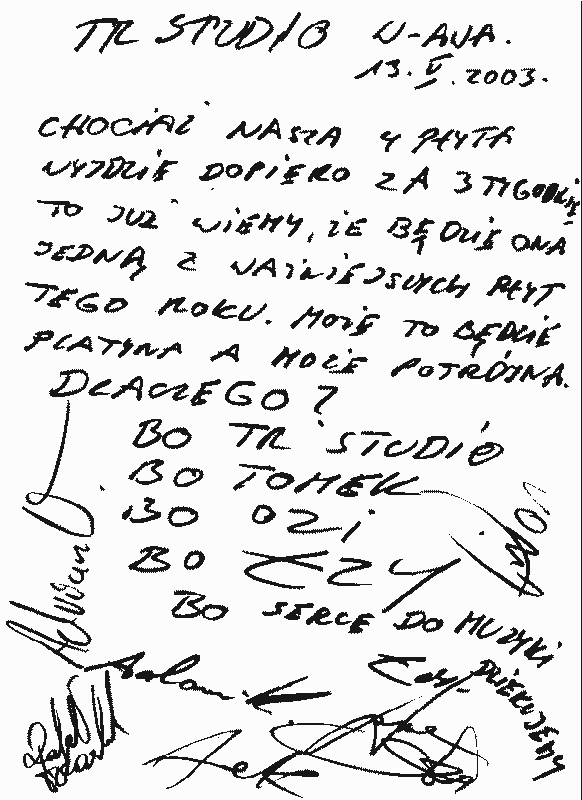 TR STUDIO W-AWA.
13.V.2003.
CHOCIAŻ NASZA 4 PŁYTA
WYJDZIE DOPIERO ZA 3 TYGODNIE
TO JUŻ WIEMY, ŻE BĘDZIE ONA
JEDNĄ Z WAŻNIEJSZYCH PŁYT
TEGO ROKU. MOŻE TO BĘDZIE
PLATYNA A MOŻE POTRÓJNA.
DLACZEGO?
BO TR STUDIO
BO TOMEK
BO OZI
BO
BO SERCE DO MUZYKI
DZIĘKUJEMY